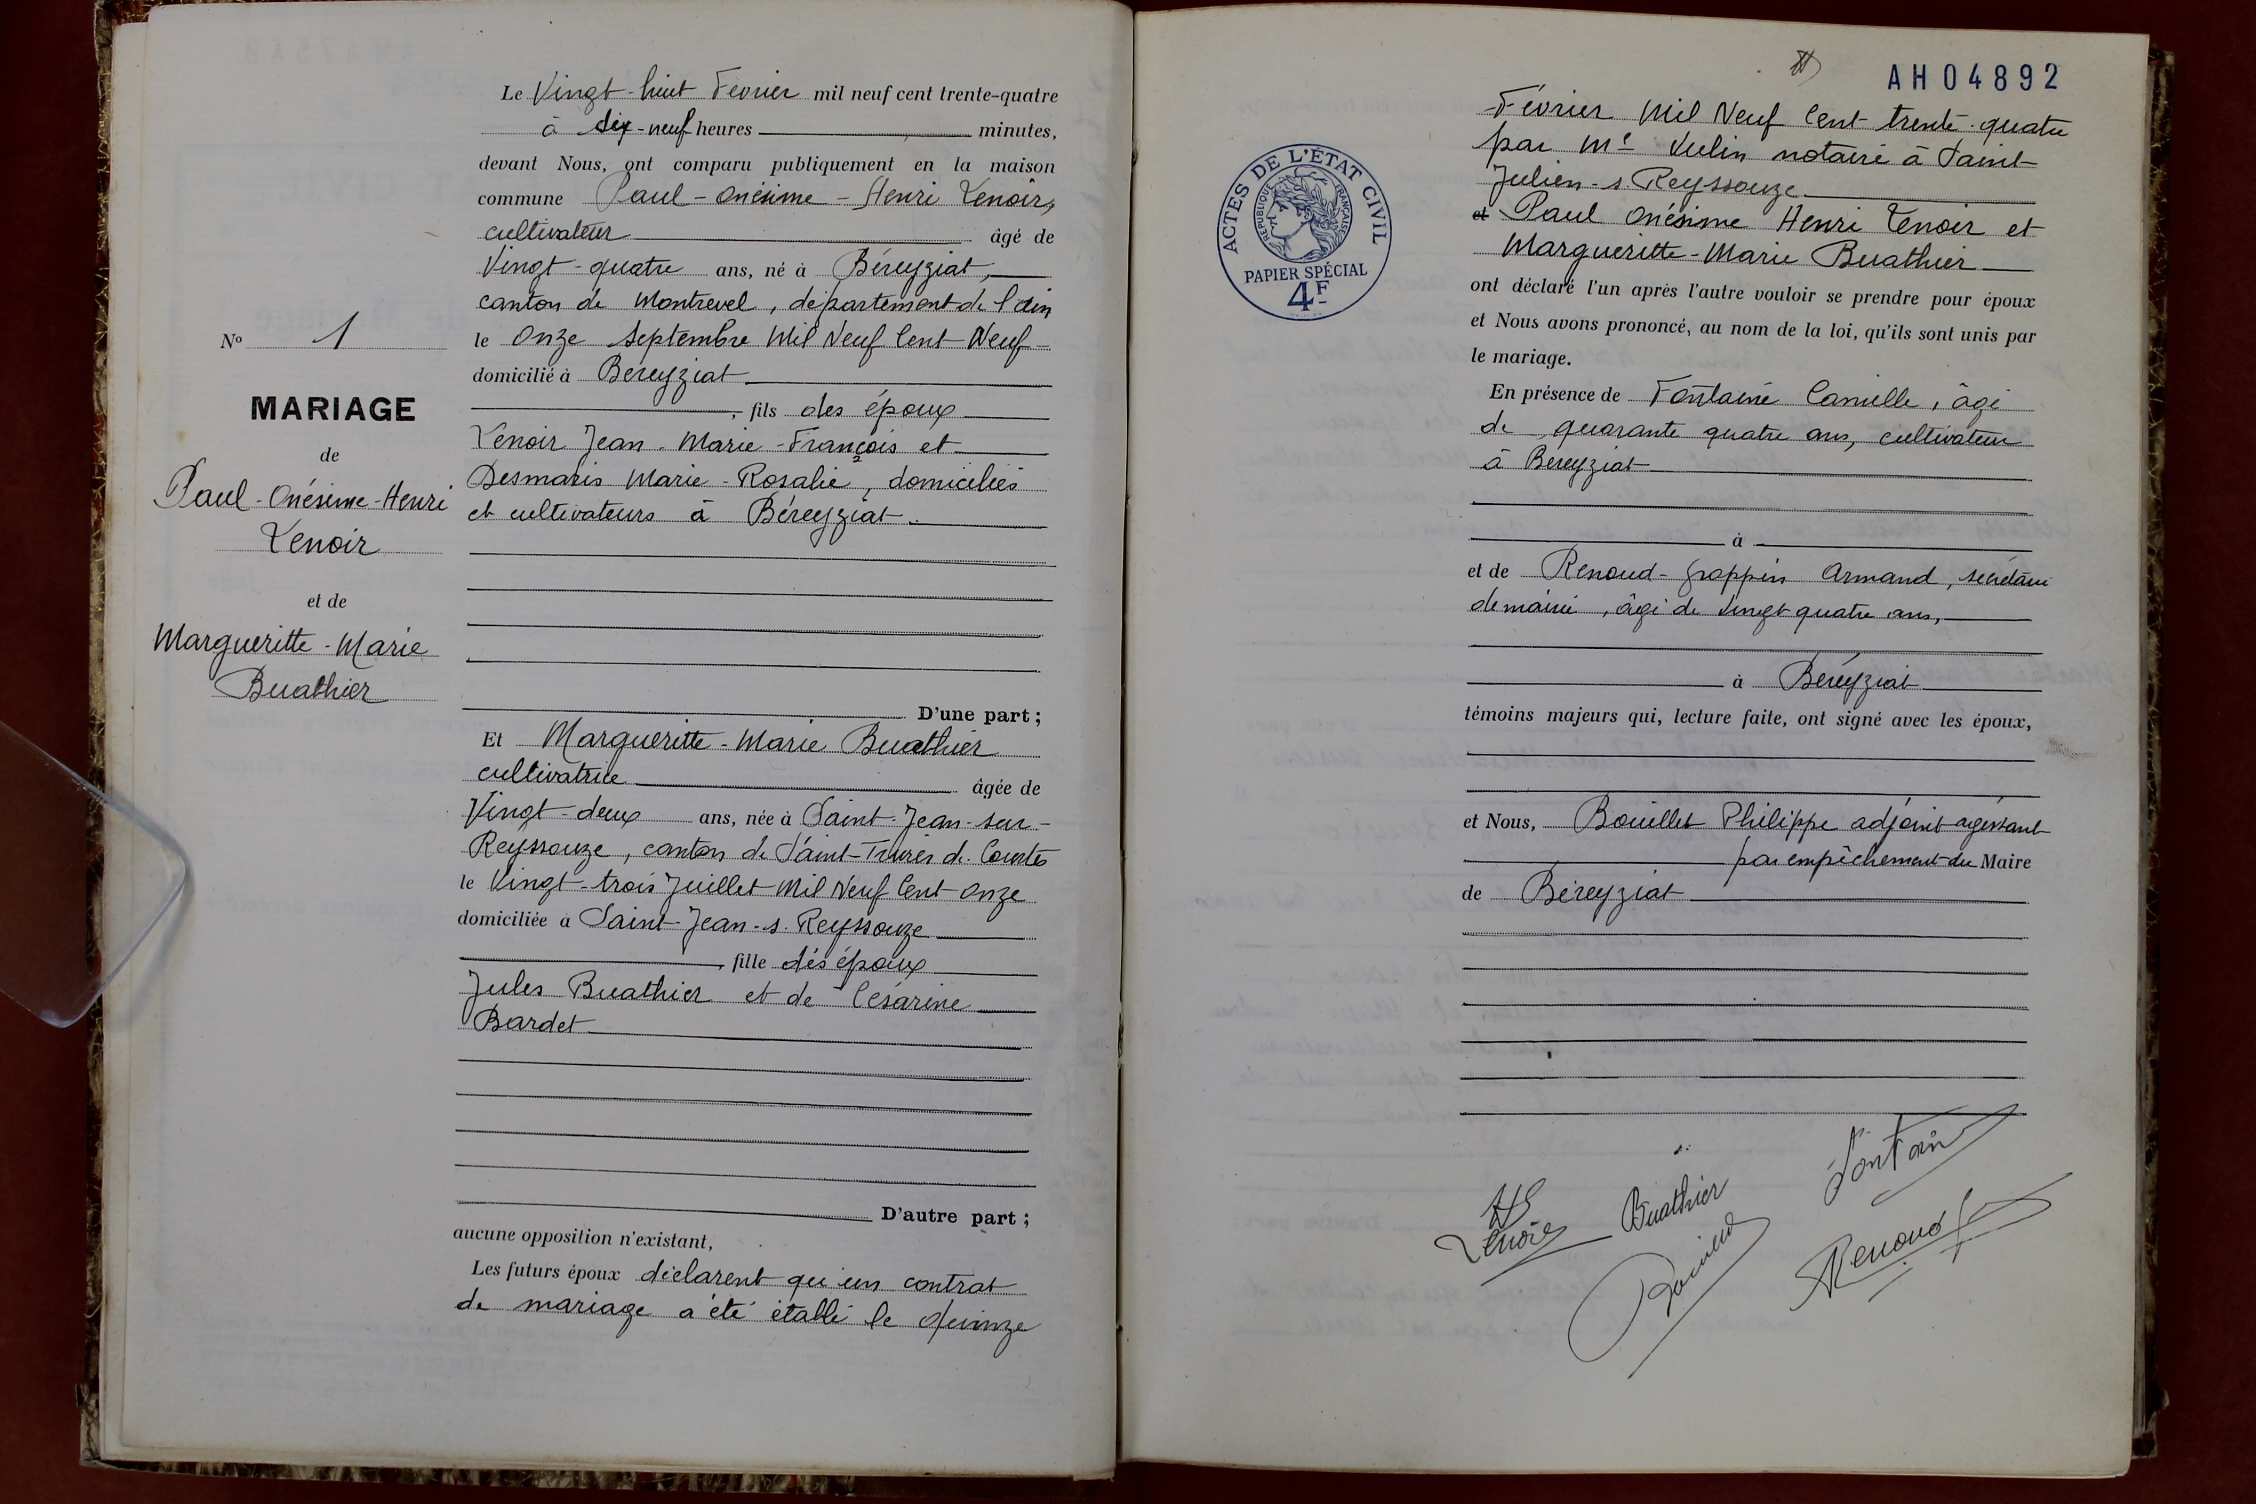 Le Vingt-huit Février mil neuf cent trente-quatre
à dix-neuf heures minutes,
devant Nous, ont comparu publiquement en la maison
commune Paul-Onésime-Henri Lenoir,
cultivateur âgé de
Vingt-quatre ans, né à Béreyziat,
canton de Montrevel, département de l'Ain
le onze Septembre Mil Neuf Cent Neuf
domicilié à Béreyziat
, fils des époux
Lenoir Jean-Marie-François et
Desmaris Marie-Rosalie, domiciliés
et cultivateurs à Béreyziat.
D'une part ;
Et Margueritte-Marie Buathier
cultivatrice âgée de
Vingt-deux ans, née à Saint-Jean-sur-
Reyssouze, canton de Saint-Trivier de Courtes
le Vingt-trois Juillet Mil Neuf Cent onze
domiciliée à Saint-Jean-s. Reyssouze
, fille des époux
Jules Buathier et de Césarine
Bardet
D'autre part ;
aucune opposition n'existant,
Les futurs époux déclarent qu'un contrat
de mariage a été établi le quinze
N° 1
MARIAGE
de
Paul-Onésime-Henri
Lenoir
et de
Margueritte-Marie
Buathier
AH04892
Février Mil Neuf Cent trente-quatre
par Me Vulin notaire à Saint
Julien-s. Reyssouze
et Paul Onésime Henri Lenoir et
Margueritte-Marie Buathier
ont déclaré l'un après l'autre vouloir se prendre pour époux
et Nous avons prononcé, au nom de la loi, qu'ils sont unis par
le mariage.
En présence de Fontaine Camille, âgé
de quarante quatre ans, cultivateur
à Béreyziat
à
et de Renoud-Grappin Armand, secrétaire
de mairie, âgé de vingt quatre ans,
à Béreyziat
témoins majeurs qui, lecture faite, ont signé avec les époux,
et Nous, Bouillet Philippe adjoint agissant
par empêchement du Maire
de Béreyziat
ACTES DE L'ÉTAT CIVIL
RÉPUBLIQUE FRANÇAISE
PAPIER SPÉCIAL
4F
Fontain
Lenoir
Buathier
Renoud